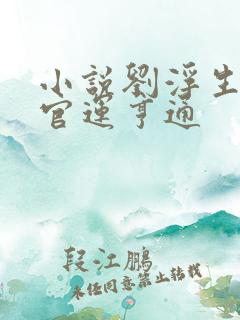 小說劉浮生
官運亨通
段江鵬
未經同意禁止轉載